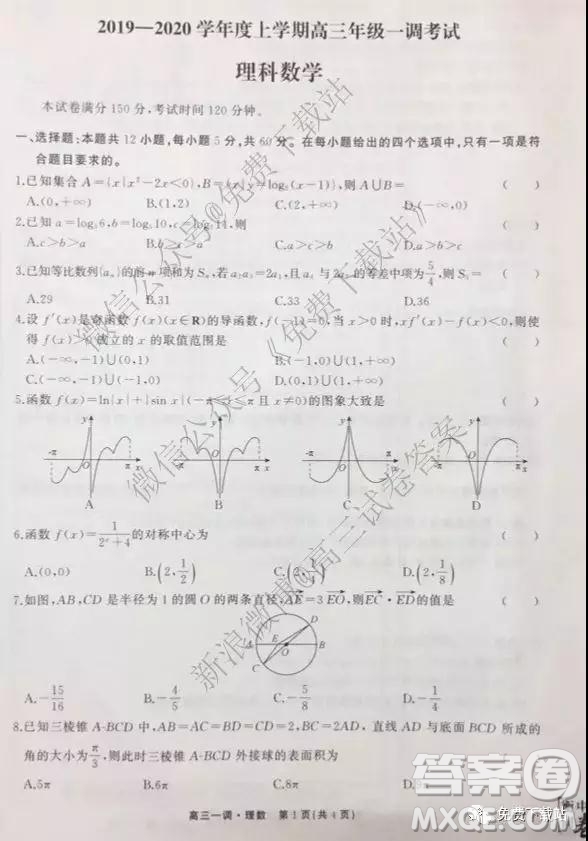 2019—2020 学年度上学期高三年级一调考试
理科数学
本试卷满分 150 分,考试时间 120 分钟。
一、选择题:本题共 12 小题,每小题 5 分,共 60 分。在每小题给出的四个选项中,只有一项是符
合题目要求的。
1.已知集合 A={x|x²-2x<0},B={x|y=log₂(x-1)},则 A∪B= ( )
A.(0,+∞) B.(1,2) C.(2,+∞) D.(-∞,0)
2.已知 a=log₃6,b=log₅10,c=log₇14,则 ( )
A.c>b>a B.b>c>a C.a>c>b D.a>b>c
3.已知等比数列{aₙ}的前 n 项和为 Sₙ,若 a₂a₃=2a₁,且 a₄ 与 2a₇ 的等差中项为 5/4,则 S₅= ( )
A.29 B.31 C.33 D.36
4.设 f′(x)是奇函数 f(x)(x∈R)的导函数,f(-1)=0,当 x>0 时,xf′(x)-f(x)<0,则使
得 f(x)>0 成立的 x 的取值范围是 ( )
A.(-∞,-1)∪(0,1) B.(-1,0)∪(1,+∞)
C.(-∞,-1)∪(-1,0) D.(0,1)∪(1,+∞)
5.函数 f(x)=ln|x|+|sin x|(-π≤x≤π 且 x≠0)的图象大致是 ( )
y -π O π x y -π O π x y -π O π x y -π O π x
A B C D
6.函数 f(x)=1/(2ˣ+4)的对称中心为 ( )
A.(0,0) B.(2,1/2) C.(2,1/4) D.(2,1/8)
7.如图,AB,CD 是半径为 1 的圆 O 的两条直径,AE=3 EO,则EC·ED的值是 ( )
A E O B C D
A.-15/16 B.-4/5 C.-5/8 D.-1/4
8.已知三棱锥 A-BCD 中,AB=AC=BD=CD=2,BC=2AD,直线 AD 与底面 BCD 所成的
角的大小为 π/3,则此时三棱锥 A-BCD 外接球的表面积为 ( )
A.5π B.6π C.8π
高三一调·理数 第 1 页(共 4 页)
微信公众号@免费下载站
微信公众号《免费下载站》
新浪微博@高三试卷答案
答案卷
免费下载站